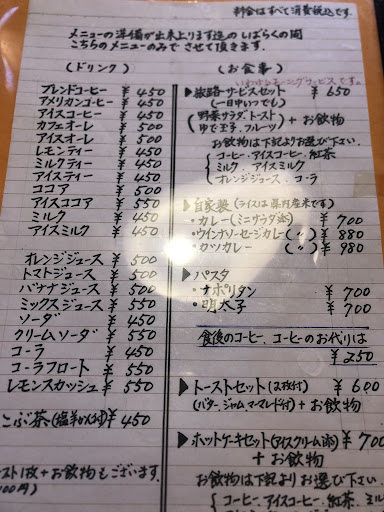 料金はすべて消費税込です。
メニューの準備が出来上ります迄のいばらくの間
こちらのメニューのみでさせて頂きます。
(ドリンク)
ブレンドコーヒー ¥450
アメリカンコーヒー ¥450
アイスコーヒー ¥450
カフェオーレ ¥500
アイスオーレ ¥500
レモンティー ¥450
ミルクティー ¥450
アイスティー ¥450
ココア ¥500
アイスココア ¥550
ミルク ¥450
アイスミルク ¥450
オレンジジュース ¥500
トマトジュース ¥500
バナナジュース ¥500
ミックスジュース ¥550
ソーダ ¥450
クリームソーダ ¥550
コーラ ¥450
コーラフロート ¥550
レモンスカッシュ ¥550
こぶ茶(塩羊かん付) ¥450
スト1枚+お飲物もございます。
00円)
(お食事)
いわゆるモーニングサービスです。
▶淡路サービスセット ¥650
(一日中いつでも)
(野菜サラダ、トースト
ゆで玉子、フルーツ)+お飲物
お飲物は下記よりお選び下さい
コーヒー・アイスコーヒー・紅茶
ミルク アイスミルク
オレンジジュース・コーラ
▶自家製(ライスは県内産米です)
・カレー(ミニサラダ添) ¥700
・ウインナーソーセージカレー(〃) ¥880
・カツカレー (〃) ¥980
▶パスタ
・ナポリタン ¥700
・明太子 ¥700
食後のコーヒー、コーヒーのお代りは
¥250
▶トーストセット(2枚付) ¥600
(バター、ジャム、マーマレード付)+お飲物
▶ホットケーキセット(アイスクリーム添) ¥700
+お飲物
お飲物は下記よりお選び下さい
コーヒー・アイスコーヒー・紅茶・ミル